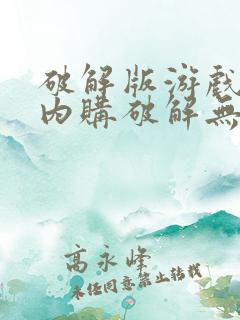 破解版游戏
内購破解無
高永峰
未经同意禁止转载